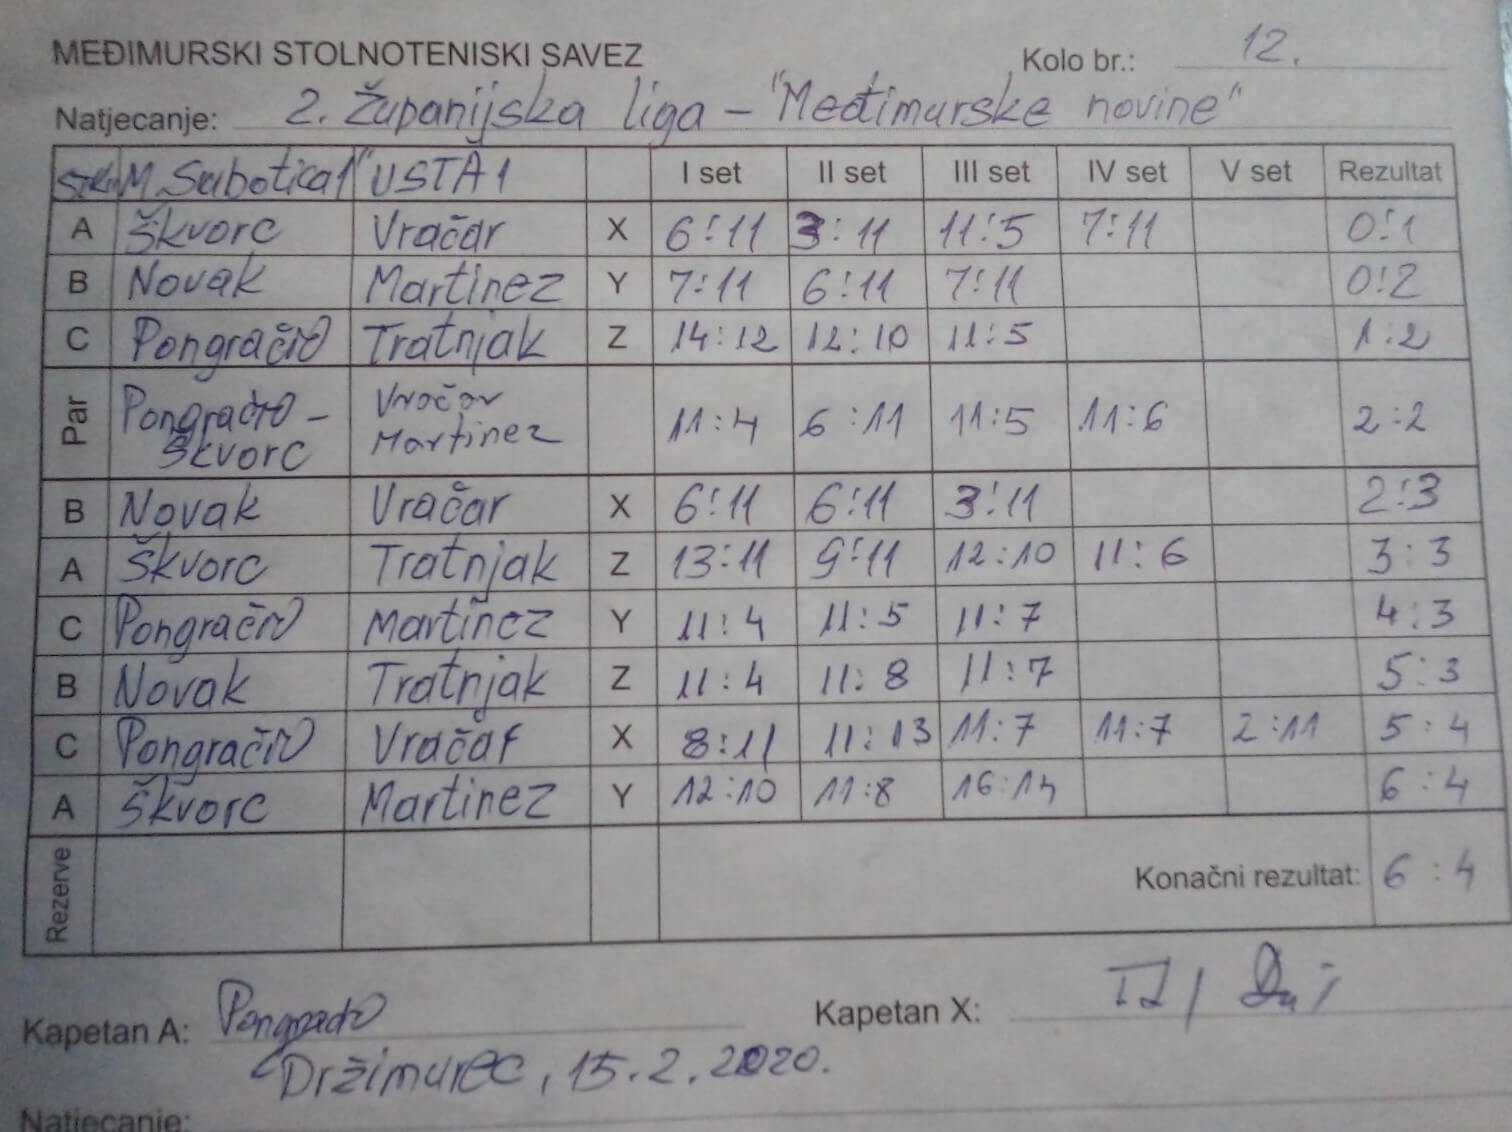 MEĐIMURSKI STOLNOTENISKI SAVEZ Kolo br.: 12.
Natjecanje: 2. Županijska liga - "Međimurske novine"
STK M. Subotica 1" USTA 1 I set II set III set IV set V set Rezultat
A Škvorc Vračar X 6:11 3:11 11:5 7:11 0:1
B Novak Martinez Y 7:11 6:11 7:11 0:2
C Pongračić Tratnjak Z 14:12 12:10 11:5 1:2
Par Pongračić - Škvorc Vračar Martinez 11:4 6:11 11:5 11:6 2:2
B Novak Vračar X 6:11 6:11 3:11 2:3
A Škvorc Tratnjak Z 13:11 9:11 12:10 11:6 3:3
C Pongračić Martinez Y 11:4 11:5 11:7 4:3
B Novak Tratnjak Z 11:4 11:8 11:7 5:3
C Pongračić Vračar X 8:11 11:13 11:7 11:7 2:11 5:4
A Škvorc Martinez Y 12:10 11:8 16:14 6:4
Rezerve Konačni rezultat: 6:4
Kapetan A: Pongračić Kapetan X:
Držimurec, 15.2.2020.
Natjecanje: